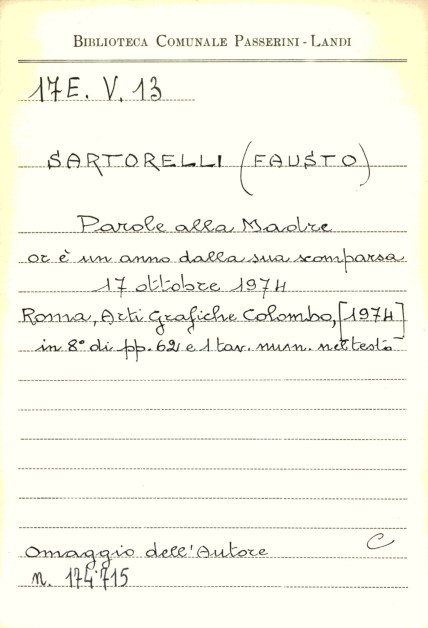 BIBLIOTECA COMUNALE PASSERINI - LANDI
17E. V. 13
SARTORELLI (FAUSTO)
Parole alla Madre
or è un anno dalla sua scomparsa
17 ottobre 1974
Roma, Arti Grafiche Colombo, [1974]
in 8° di pp. 62 e 1 tav. num. nel testo
Omaggio dell'Autore
C
n. 174.715